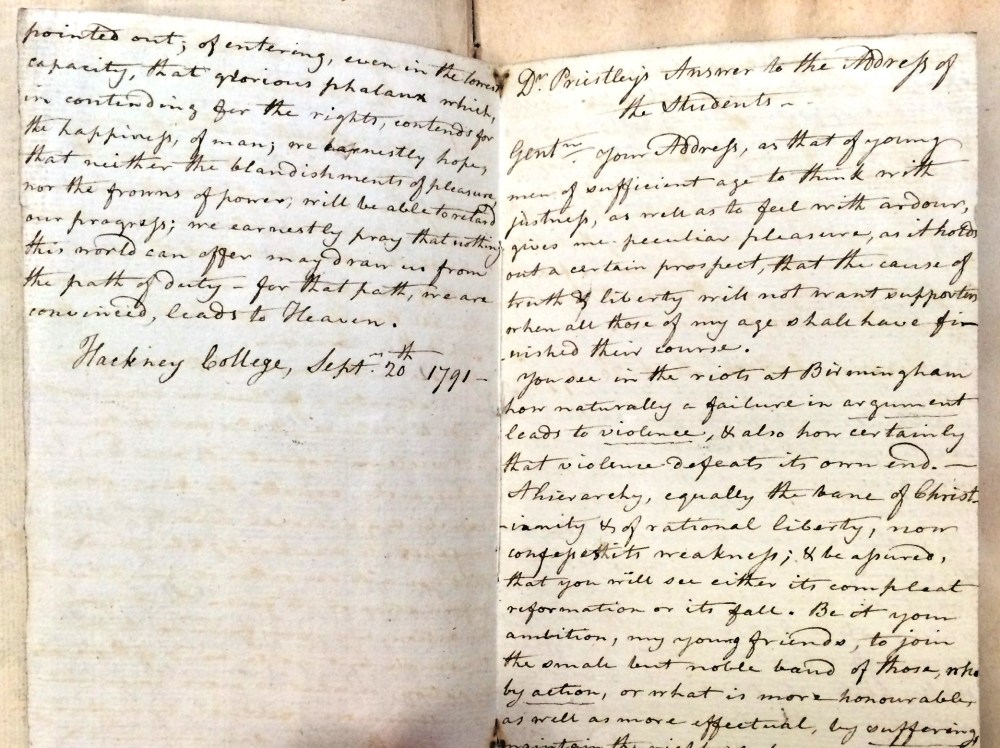 pointed out; of entering, even in the lowest
capacity, that glorious phalanx which,
in contending for the rights, contends for
the happiness, of man; we earnestly hope,
that neither the blandishments of pleasure,
nor the frowns of power, will be able to retard
our progress; we earnestly pray that nothing
this world can offer may draw us from
the path of duty – for that path, we are
convinced, leads to Heaven.
Hackney College, Septr. 20th 1791 –
Dr. Priestley's Answer to the Address of
the Students –
Gentn. Your Address, as that of young
men of sufficient age to think with
justness, as well as to feel with ardour,
gives me peculiar pleasure, as it holds
out a certain prospect, that the cause of
truth & liberty will not want supporters
when all those of my age shall have fi-
-nished their course.
You see in the riots at Birmingham
how naturally a failure in argument
leads to violence, & also how certainly
that violence defeats its own end. –
A hierarchy, equally the bane of Christ-
-ianity & of rational liberty, now
confesseth its weakness; & be assured,
that you will see either its compleat
reformation or its fall. Be it your
ambition, my young friends, to join
the small but noble band of those, who
by action, or what is more honourable,
as well as more effectual, by suffering,
maintain the